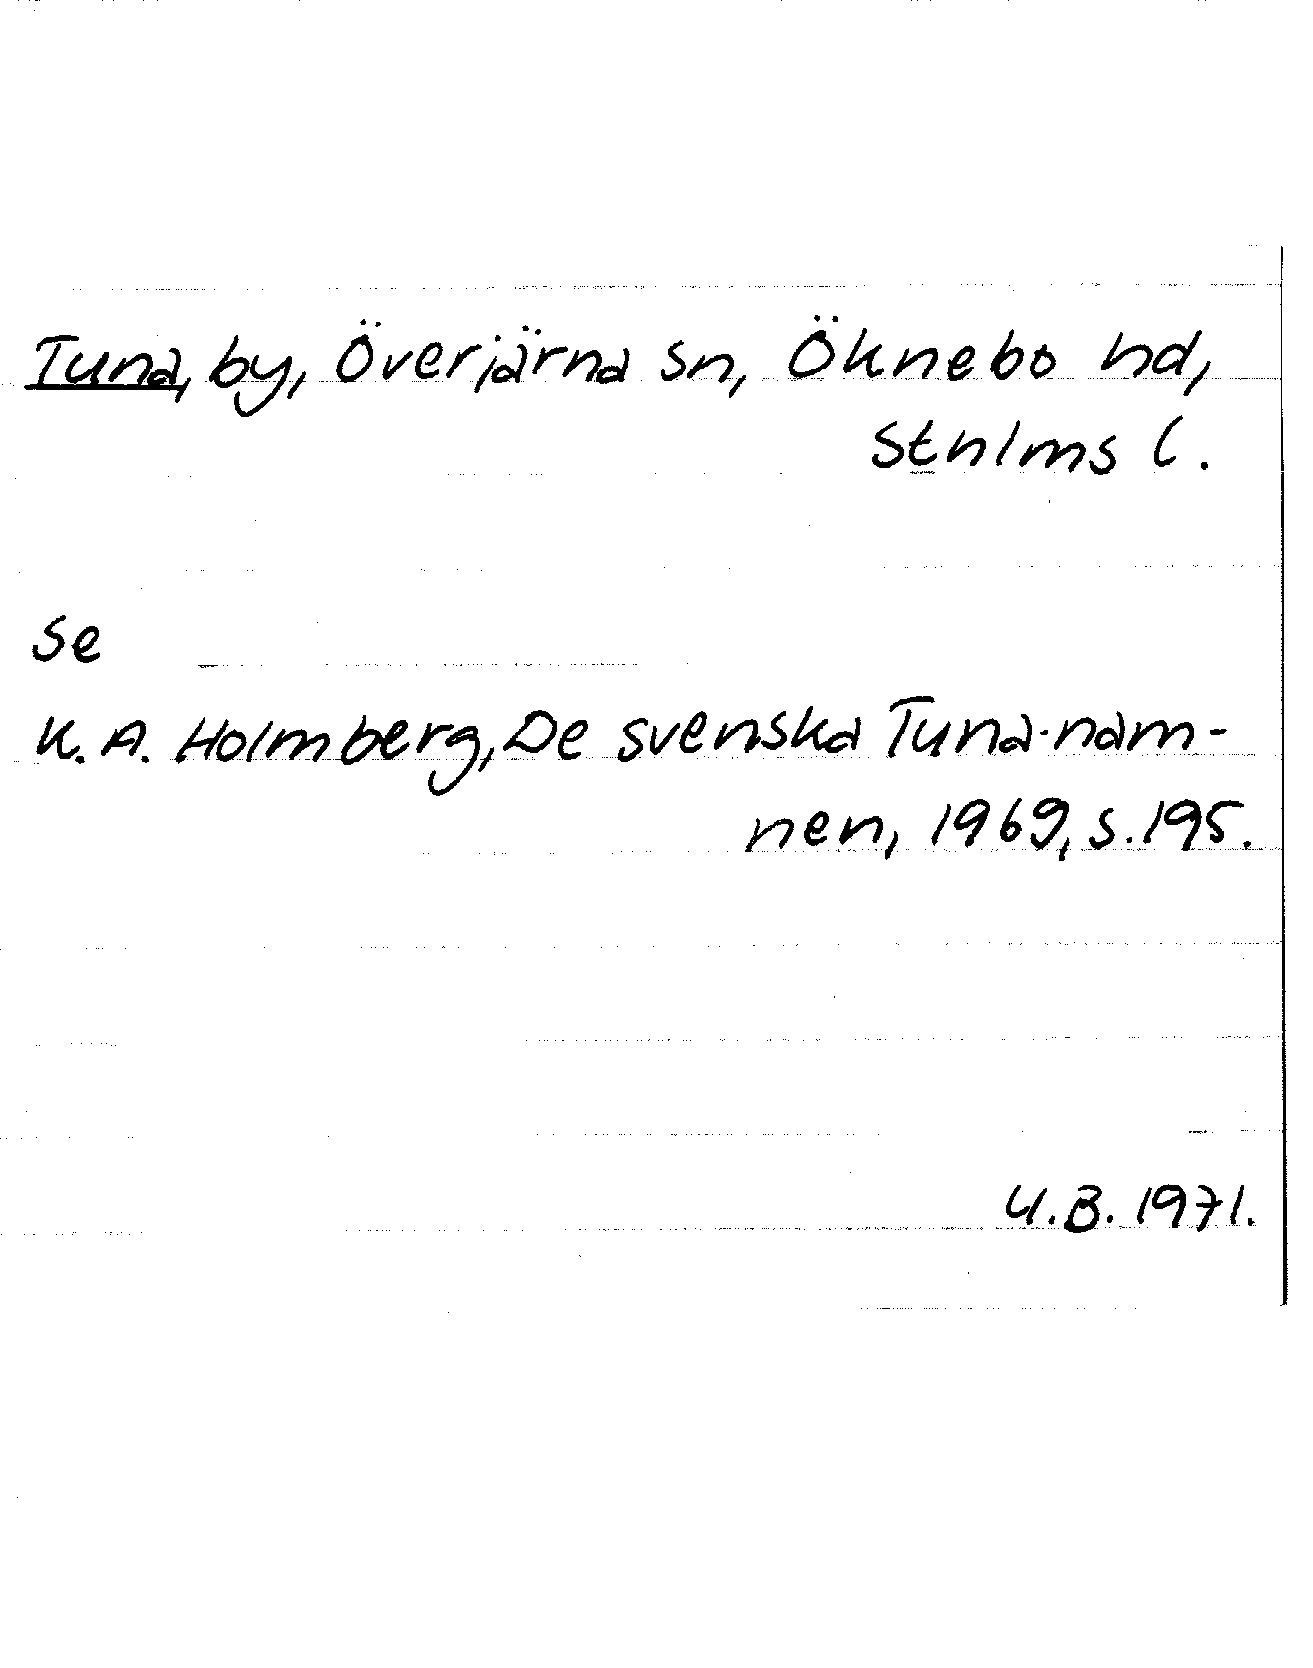 Tuna, by, Överjärna sn, Öknebo hd,
Sthlms l.
se
K. A. Holmberg, De svenska Tuna-nam-
nen, 1969, s. 195.
U.B. 1971.